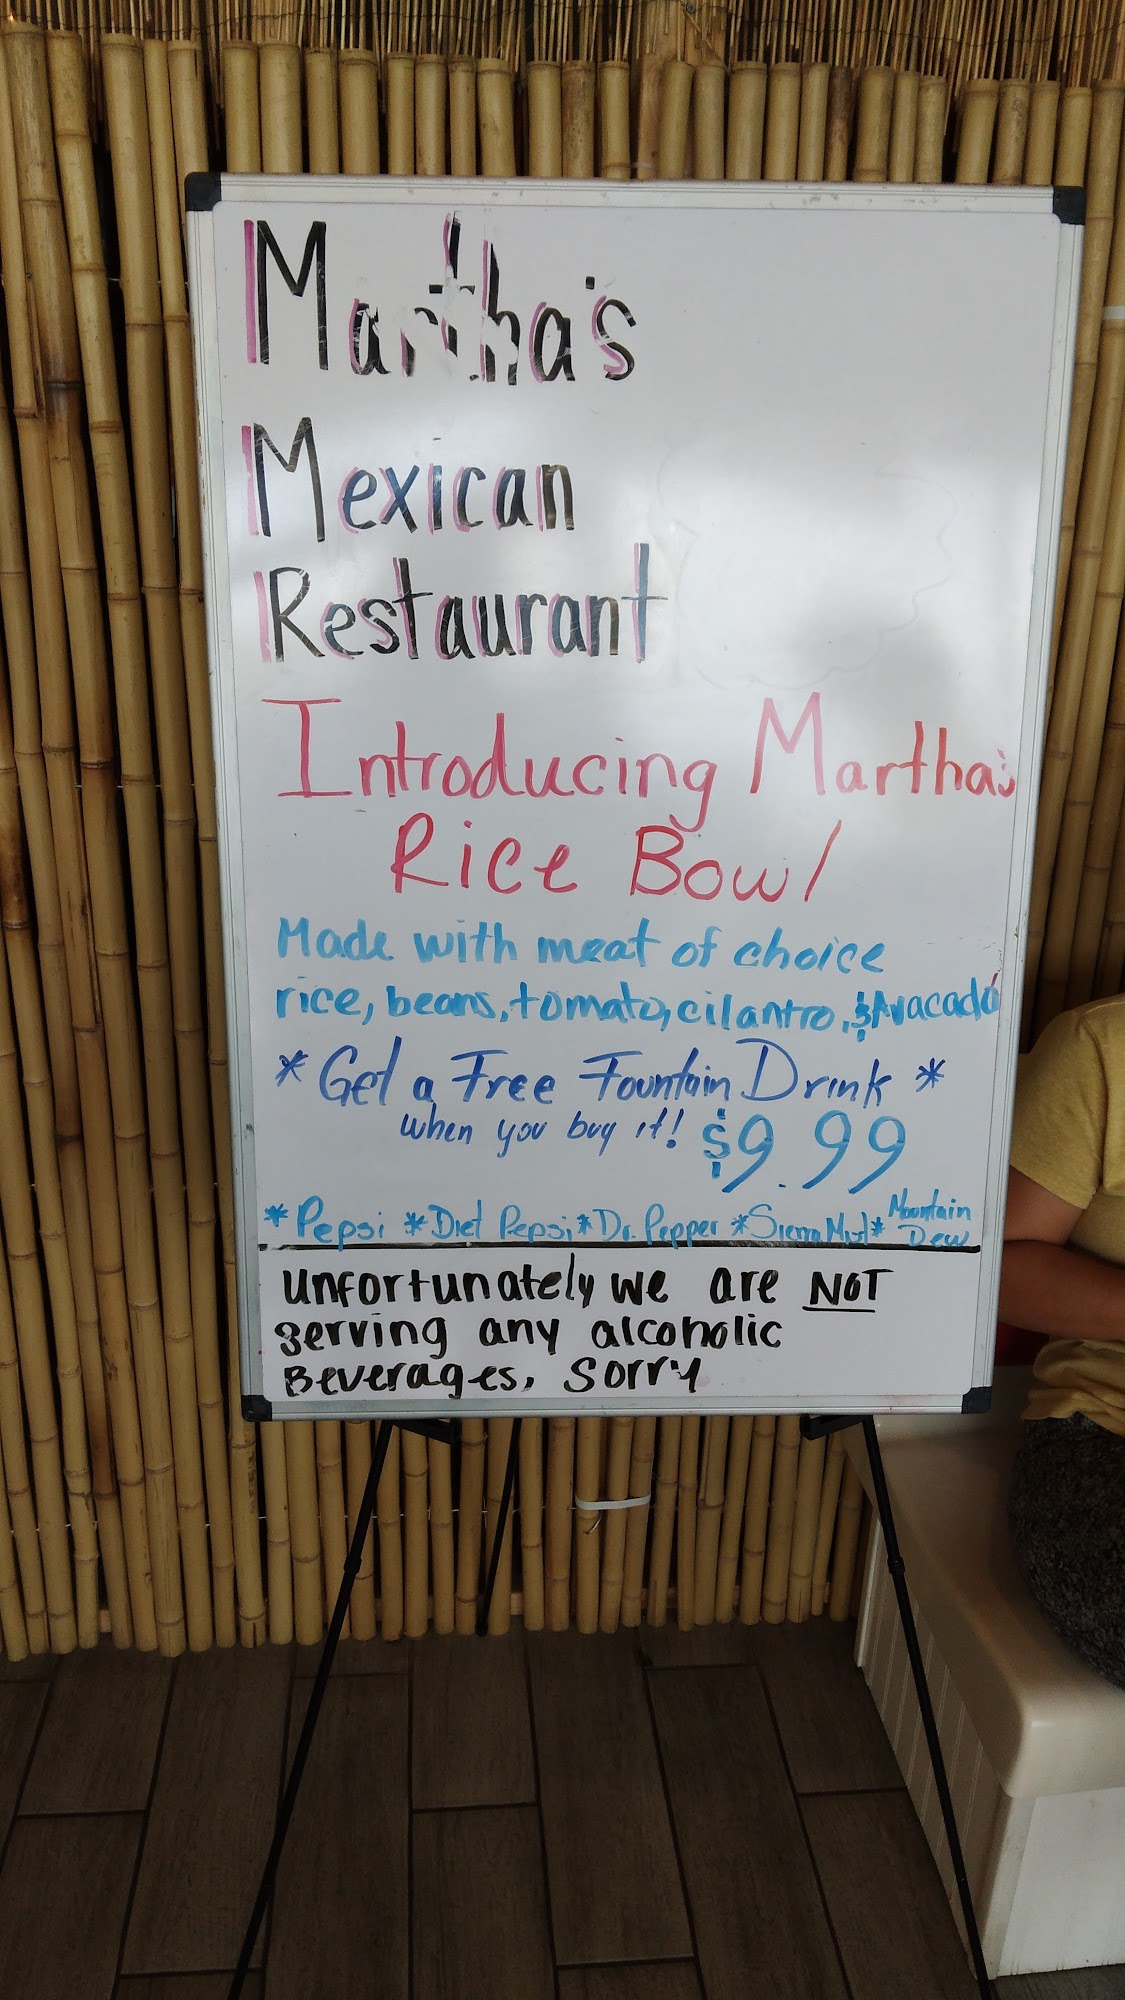 Martha's
Mexican
Restaurant
Introducing Martha's
Rice Bowl
Made with meat of choice
rice, beans, tomato, cilantro, & Avacado
*Get a Free Fountain Drink *
when you buy it! $9.99
*Pepsi *Diet Pepsi *Dr. Pepper *Sierra Mist* Mountain Dew
Unfortunately we are NOT
serving any alcoholic
Beverages, Sorry